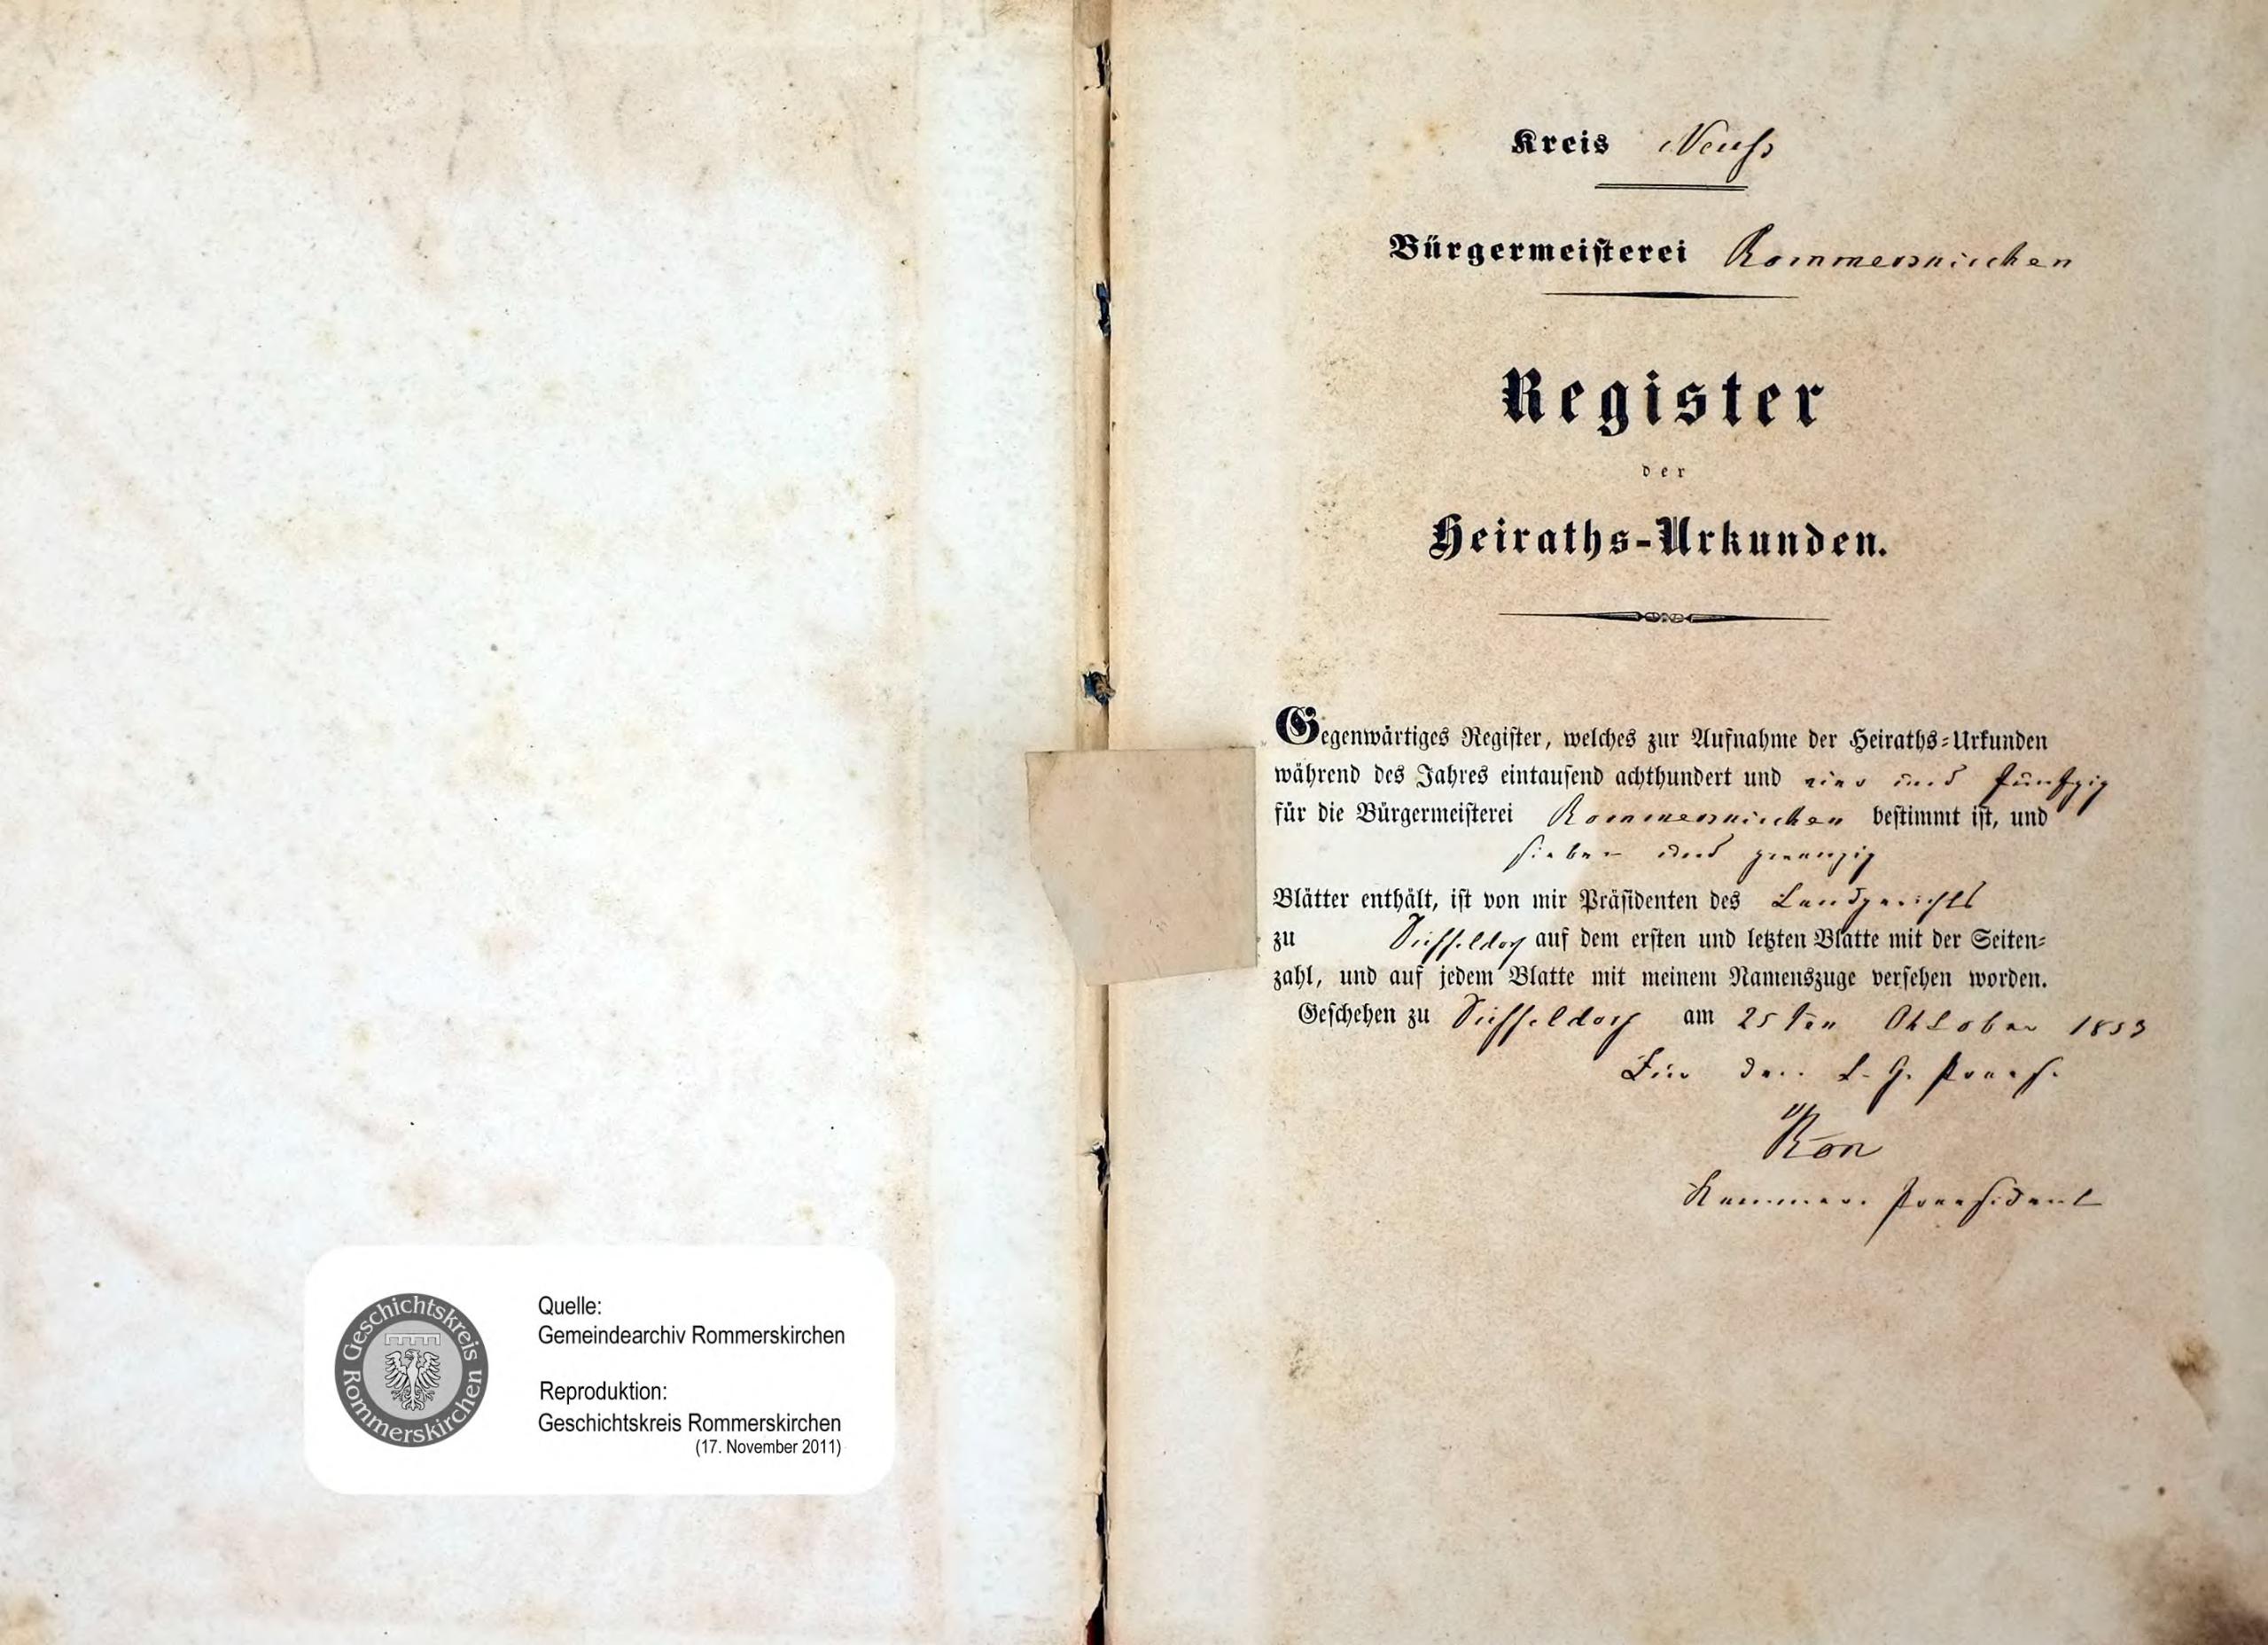 Geschichtskreis Rommerskirchen
Quelle:
Gemeindearchiv Rommerskirchen
Reproduktion:
Geschichtskreis Rommerskirchen
(17. November 2011)
Kreis Neuß
Bürgermeisterei Rommerskirchen
Register
der
Heiraths-Urkunden.
Gegenwärtiges Register, welches zur Aufnahme der Heiraths-Urkunden
während des Jahres eintausend achthundert und vier und fünfzig
für die Bürgermeisterei Rommerskirchen bestimmt ist, und
sieben und zwanzig
Blätter enthält, ist von mir Präsidenten des Landgerichts
zu Düsseldorf auf dem ersten und letzten Blatte mit der Seiten-
zahl, und auf jedem Blatte mit meinem Namenszuge versehen worden.
Geschehen zu Düsseldorf am 25ten Oktober 1853
Für den L. G. Praes.
Kammer. Praesident